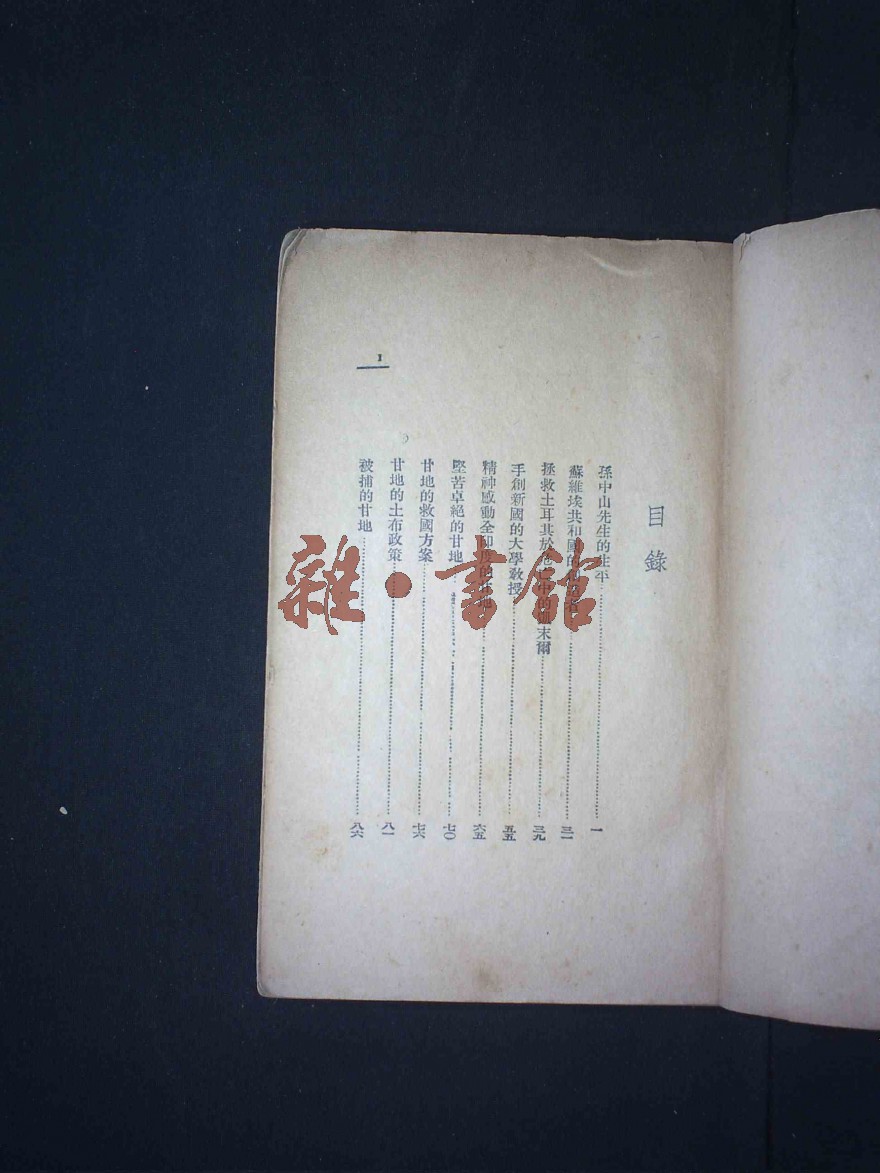 目錄
孫中山先生的生平……一
蘇維埃共和國的……三一
拯救土耳其於危亡中的凱末爾……三九
手創新國的大學教授……五五
精神感動全印度的甘地……六五
堅苦卓絕的甘地……七〇
甘地的救國方案……七六
甘地的土布政策……八一
被捕的甘地……八六
1
雜·書館